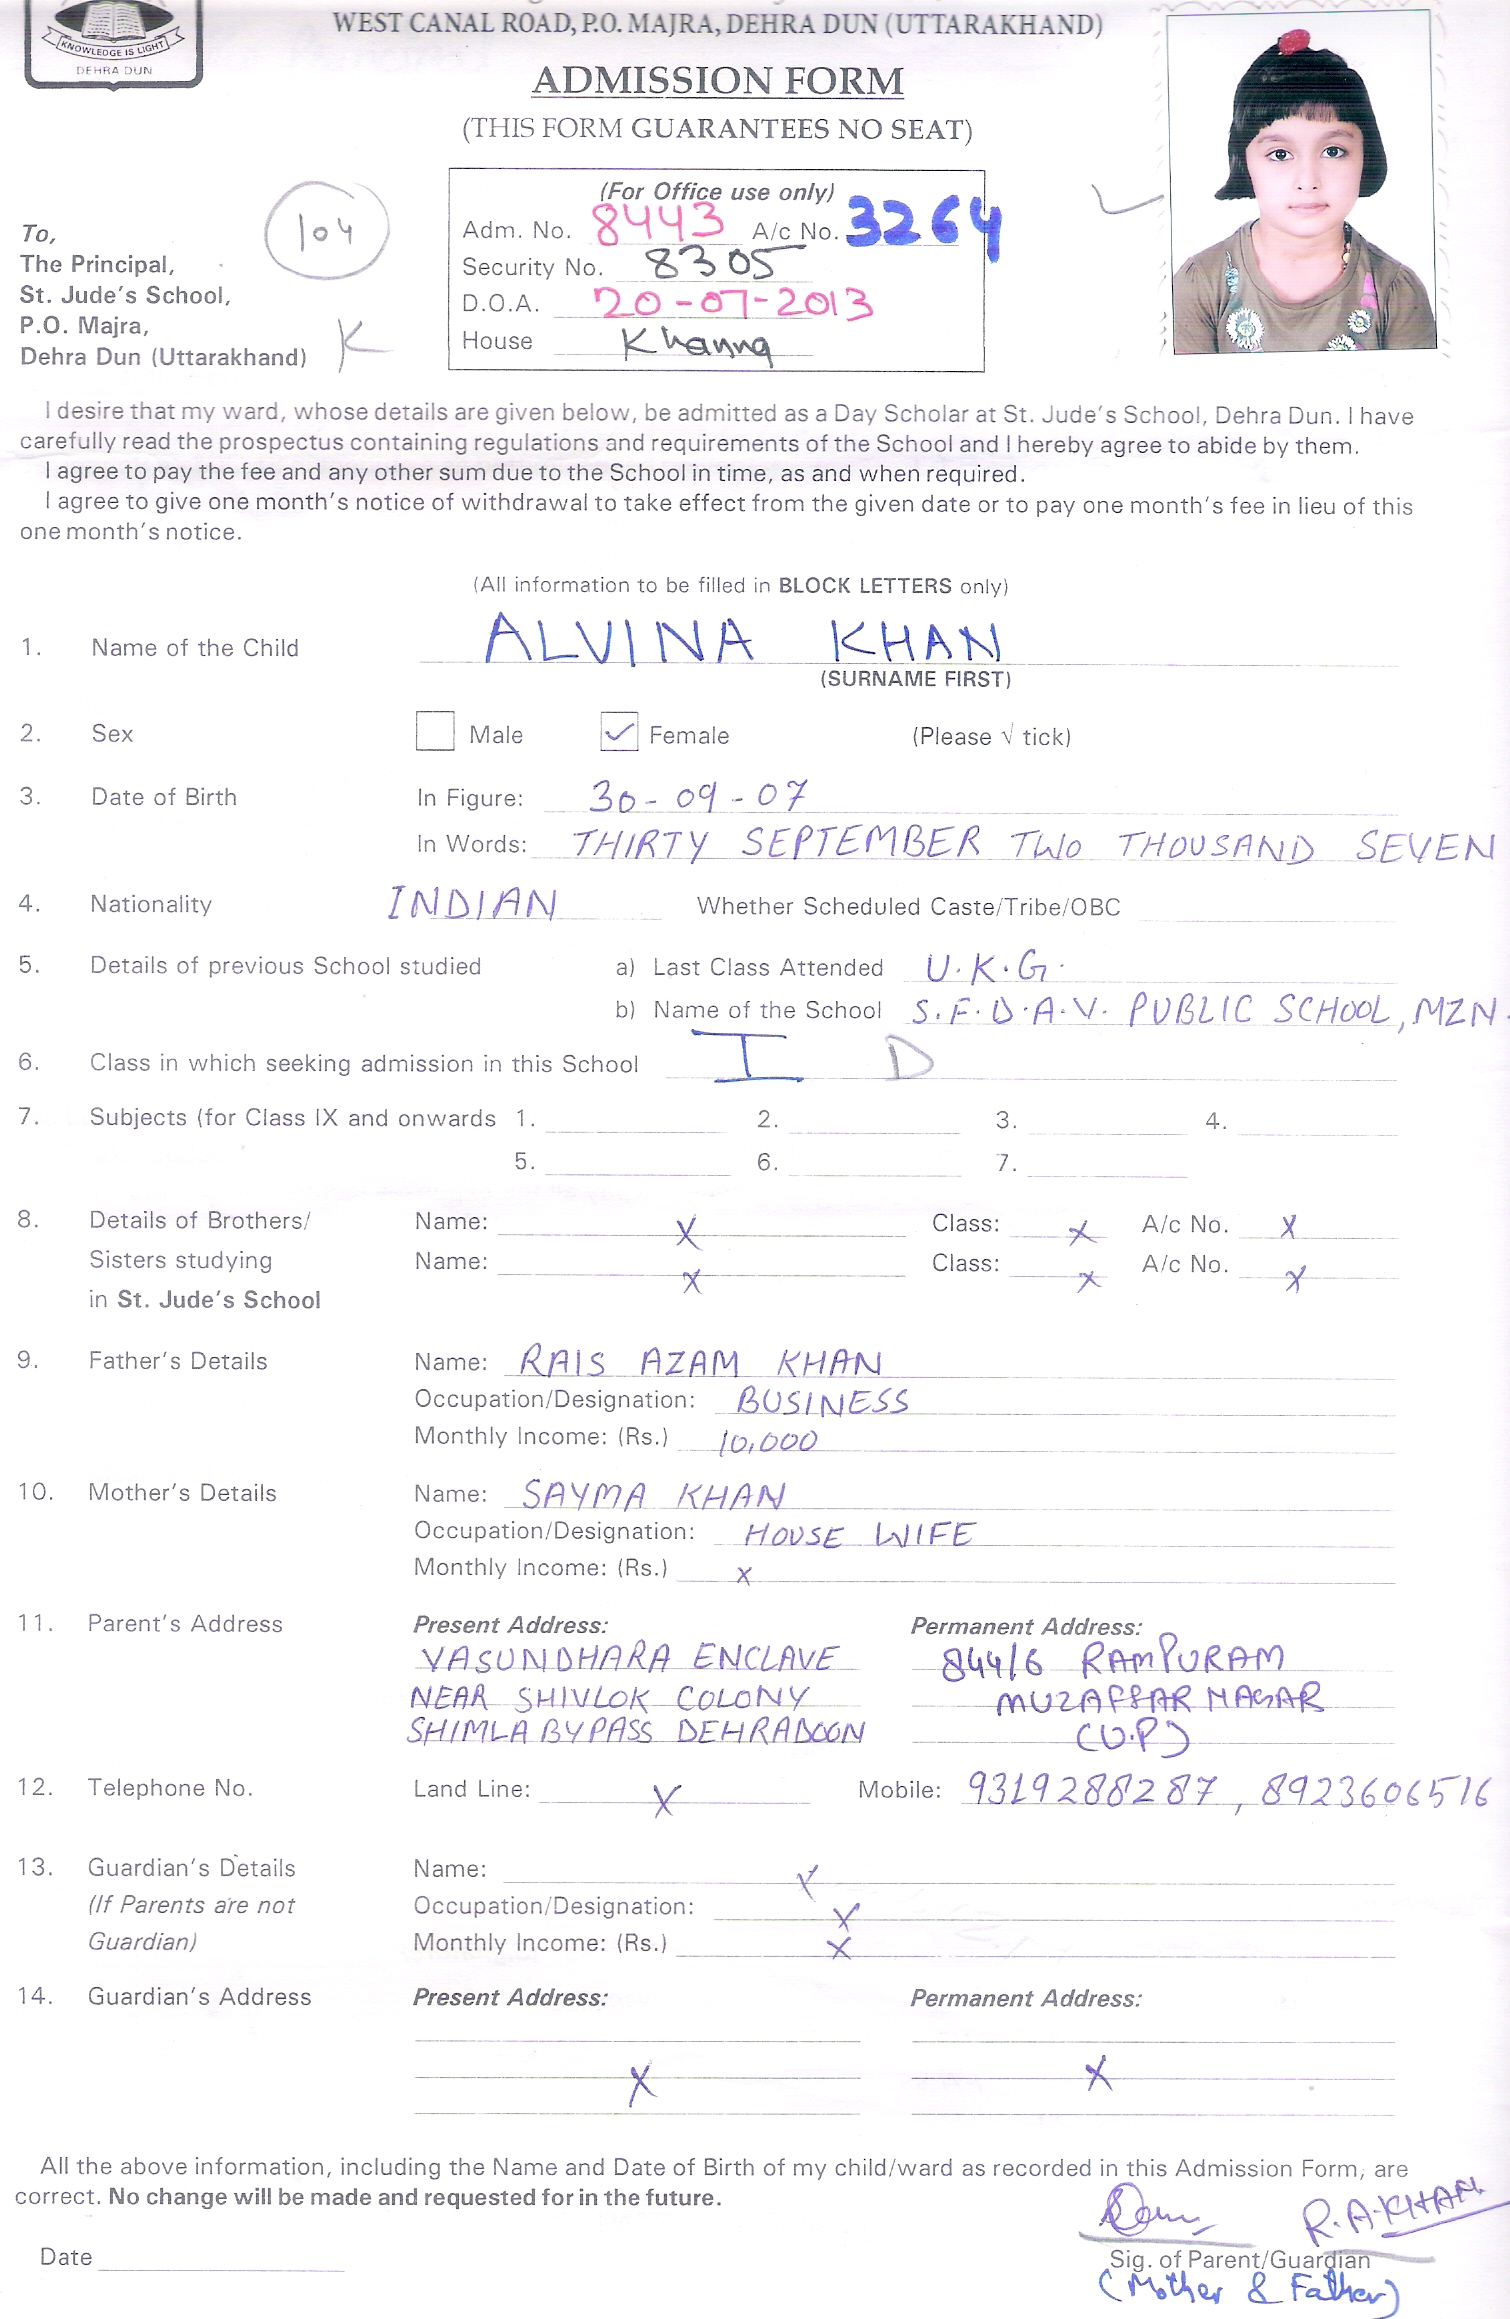 KNOWLEDGE IS LIGHT
DEHRA DUN
WEST CANAL ROAD, P.O. MAJRA, DEHRA DUN (UTTARAKHAND)
ADMISSION FORM
(THIS FORM GUARANTEES NO SEAT)
(For Office use only)
Adm. No. 8443 A/c No. 3264
Security No. 8305
D.O.A. 20-07-2013
House Khanna
104
To,
The Principal,
St. Jude's School,
P.O. Majra,
Dehra Dun (Uttarakhand) K
I desire that my ward, whose details are given below, be admitted as a Day Scholar at St. Jude's School, Dehra Dun. I have
carefully read the prospectus containing regulations and requirements of the School and I hereby agree to abide by them.
I agree to pay the fee and any other sum due to the School in time, as and when required.
I agree to give one month's notice of withdrawal to take effect from the given date or to pay one month's fee in lieu of this
one month's notice.
(All information to be filled in BLOCK LETTERS only)
1. Name of the Child ALVINA KHAN
(SURNAME FIRST)
2. Sex Male ✓ Female (Please √ tick)
3. Date of Birth In Figure: 30-09-07
In Words: THIRTY SEPTEMBER TWO THOUSAND SEVEN
4. Nationality INDIAN Whether Scheduled Caste/Tribe/OBC
5. Details of previous School studied a) Last Class Attended U.K.G.
b) Name of the School S.F.D.A.V. PUBLIC SCHOOL, MZN.
6. Class in which seeking admission in this School I D
7. Subjects (for Class IX and onwards 1. 2. 3. 4.
5. 6. 7.
8. Details of Brothers/ Name: X Class: X A/c No. X
Sisters studying Name: X Class: X A/c No. X
in St. Jude's School
9. Father's Details Name: RAIS AZAM KHAN
Occupation/Designation: BUSINESS
Monthly Income: (Rs.) 10,000
10. Mother's Details Name: SAYMA KHAN
Occupation/Designation: HOUSE WIFE
Monthly Income: (Rs.) X
11. Parent's Address Present Address: Permanent Address:
VASUNDHARA ENCLAVE 844/6 RAMPURAM
NEAR SHIVLOK COLONY MUZAFFAR NAGAR
SHIMLA BYPASS DEHRADOON (U.P)
12. Telephone No. Land Line: X Mobile: 9319288287, 8923606516
13. Guardian's Details Name: X
(If Parents are not Occupation/Designation: X
Guardian) Monthly Income: (Rs.) X
14. Guardian's Address Present Address: Permanent Address:
X X
All the above information, including the Name and Date of Birth of my child/ward as recorded in this Admission Form, are
correct. No change will be made and requested for in the future.
R.A.KHAN
Date Sig. of Parent/Guardian
(Mother & Father)